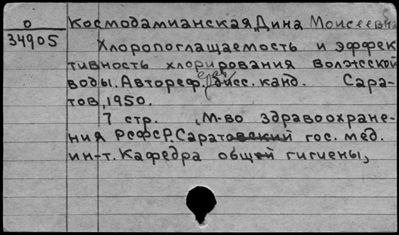 О
34905
Космодамианская, Дина Моисеевна
Хлоропоглащаемость и эффек-
тивность хлорирования волжской
воды. Автореф. дисс. канд. Сара-
тов, 1950.
7 стр. , М-во здравоохране-
ния РСФСР. Саратовский гос. мед.
ин-т. Кафедра общей гигиены,